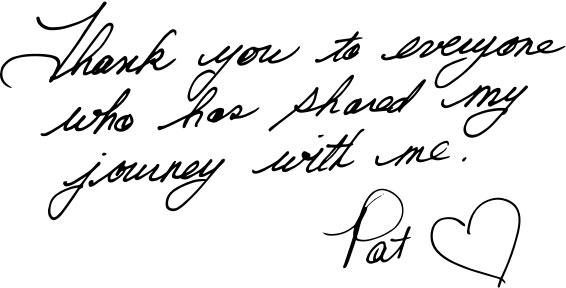 Thank you to everyone
who has shared my
journey with me.
Pat